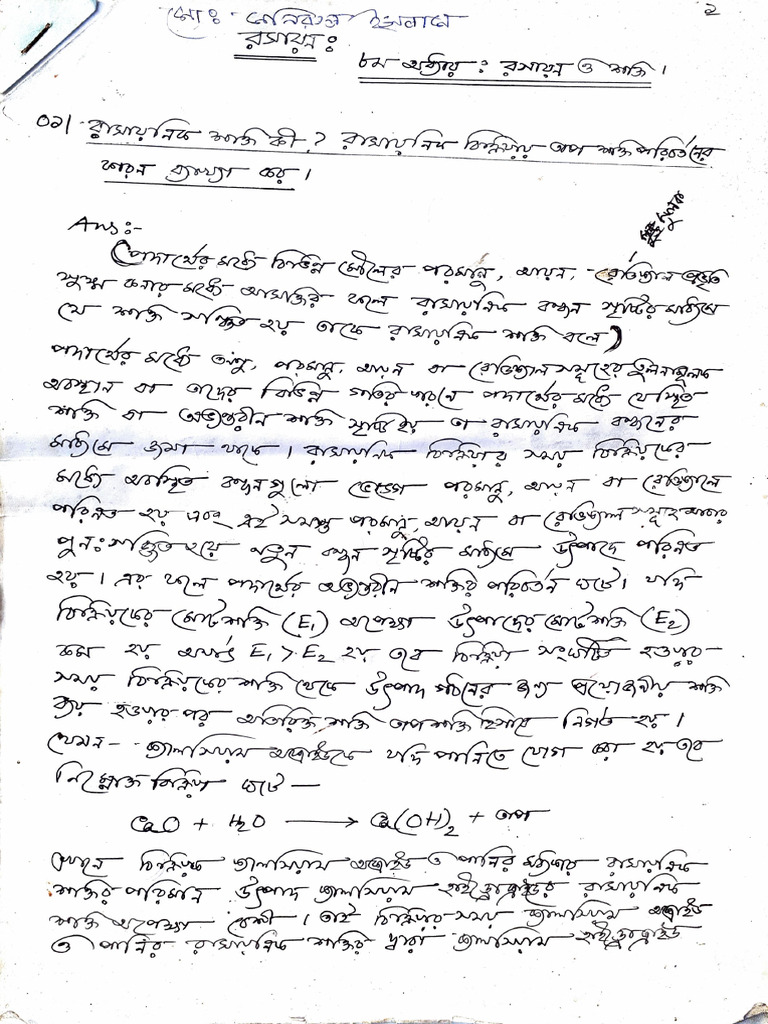 মোঃ মনিরুল ইসলাম
২
রসায়নঃ
৮ম অধ্যায় : রসায়ন ও শক্তি ।
০১। রাসায়নিক শক্তি কী ? রাসায়নিক বিক্রিয়ায় তাপ শক্তি পরিবর্তনের
কারন ব্যাখ্যা কর ।
Ans:-
(পদার্থের মধ্যে বিভিন্ন মৌলের পরমানু, আয়ন, রেডিক্যাল প্রভৃতি
ক্ষুদ্র কনার মধ্যে আসক্তির ফলে রাসায়নিক বন্ধন সৃষ্টির মাধ্যমে
যে শক্তি সঞ্চিত হয় তাকে রাসায়নিক শক্তি বলে)
পদার্থের মধ্যে অনু, পরমানু, আয়ন বা রেডিক্যাল সমূহের তুলনামূলক
অবস্থান বা তাদের বিভিন্ন গতির কারনে পদার্থের মধ্যে যে স্থিত
শক্তি বা অভ্যন্তরীন শক্তি সৃষ্টি হয় তা রাসায়নিক বন্ধনের
মাধ্যমে জমা থাকে । রাসায়নিক বিক্রিয়ার সময় বিক্রিয়কের
মধ্যে অবস্থিত বন্ধনগুলো ভেঙ্গে পরমানু, আয়ন বা রেডিক্যালে
পরিনত হয় এবং এই সমস্ত পরমানু, আয়ন বা রেডিক্যাল সমূহ আবার
পুনঃসজ্জিত হয়ে নতুন বন্ধন সৃষ্টির মাধ্যমে উৎপাদে পরিনত
হয় । এর ফলে পদার্থের অভ্যন্তরীন শক্তির পরিবর্তন ঘটে । যদি
বিক্রিয়কের মোট শক্তি (E₁) অপেক্ষা উৎপাদের মোট শক্তি (E₂)
কম হয় অর্থাৎ E₁ > E₂ হয় তবে বিক্রিয়া সংঘটিত হওয়ার
সময় বিক্রিয়কের শক্তি থেকে উৎপাদ গঠনের জন্য প্রয়োজনীয় শক্তি
ব্যয় হওয়ার পর অতিরিক্ত শক্তি তাপশক্তি হিসাবে নির্গত হয় ।
যেমন- ক্যালসিয়াম অক্সাইডকে যদি পানিতে যোগ করা হয় তবে
নিম্নোক্ত বিক্রিয়া ঘটে —
CaO + H₂O ⟶ Ca(OH)₂ + তাপ
এখানে বিক্রিয়ক ক্যালসিয়াম অক্সাইড ও পানির মধ্যকার রাসায়নিক
শক্তির পরিমান উৎপাদ ক্যালসিয়াম হাইড্রোক্সাইডের রাসায়নিক
শক্তি অপেক্ষা বেশী । তাই বিক্রিয়ার সময় ক্যালসিয়াম অক্সাইড
ও পানির রাসায়নিক শক্তির দ্বারা ক্যালসিয়াম হাইড্রোক্সাইড